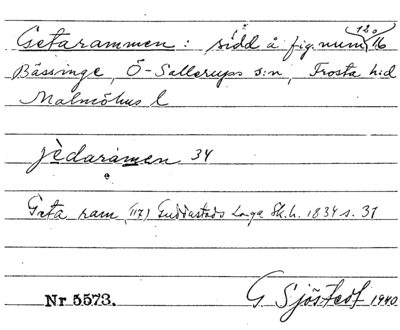 Getarammen : sidd å fig.num 120/116
Bässinge, Ö-Sallerups s:n, Frosta hd
Malmöhus l
jèdaramen 34
Geta ram (117) Guddastads Laga Sk.h. 1834 s. 31
Nr 5573. G. Sjöstedt 1940.